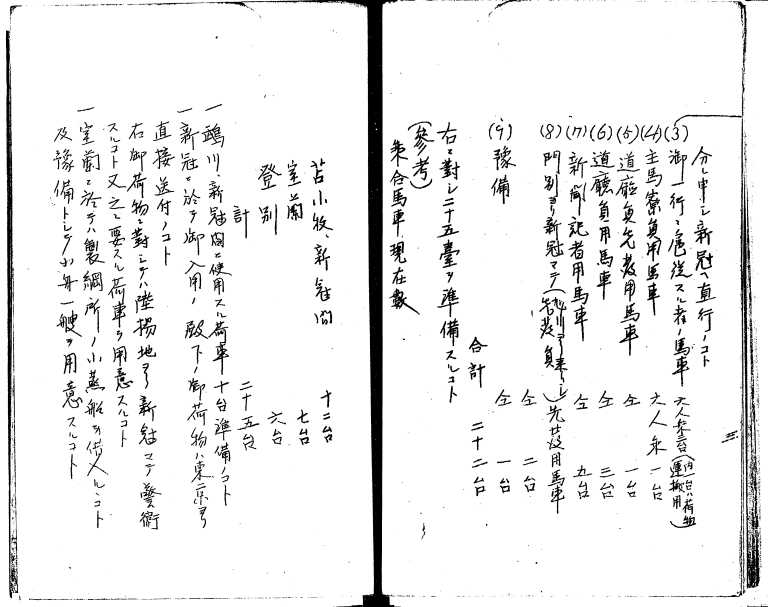 分レ申シ新冠ヘ直行ノコト
(3) 御一行ニ扈従スル者ノ馬車 六人乗三台(内一台ハ荷物運搬用)
(4) 主馬寮員用馬車 六人乗 一台
(5) 道廰員先発用馬車 仝 一台
(6) 道廰員用馬車 仝 三台
(7) 新聞記者用馬車 仝 五台
(8) 門別ヨリ新冠マテ( )先発用馬車 仝 二台
(9) 豫備 仝 一台
合計 二十二台
右ニ對シ二十五臺ヲ準備スルコト
(參考)
乗合馬車現在数
苫小牧、新冠間 十二台
室蘭 七台
登別 六台
計 二十五台
一 鵡川、新冠間ニ使用スル荷車十台準備ノコト
一 新冠ニ於テ御入用ノ殿下ノ御荷物ハ東京ヨリ
直接送付ノコト
右御荷物ニ對シテハ陸揚地ヨリ新冠マテ警衛
スルコト又之ニ要スル荷車ヲ用意スルコト
一 室蘭ニ於テハ製綱所ノ小蒸船ヲ借入ルヽコト
及豫備トシテ小舟一艘ヲ用意スルコト